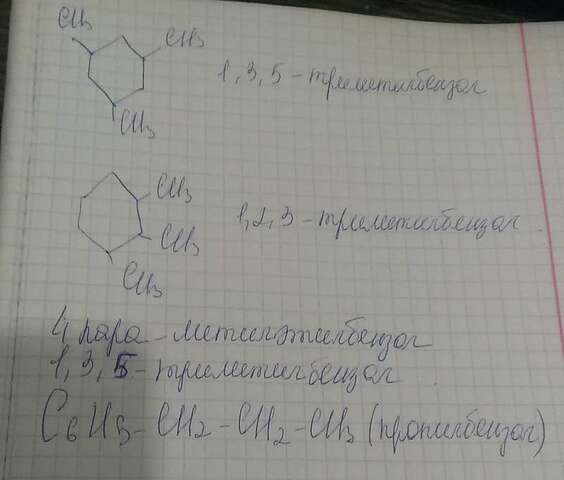 CH3
CH3
1,3,5-триметилбензол
CH3
CH3
1,2,3-триметилбензол
CH3
CH3
4 пара-метилэтилбензол
1,3,5-триметилбензол
C6H5-CH2-CH2-CH3 (пропилбензол)